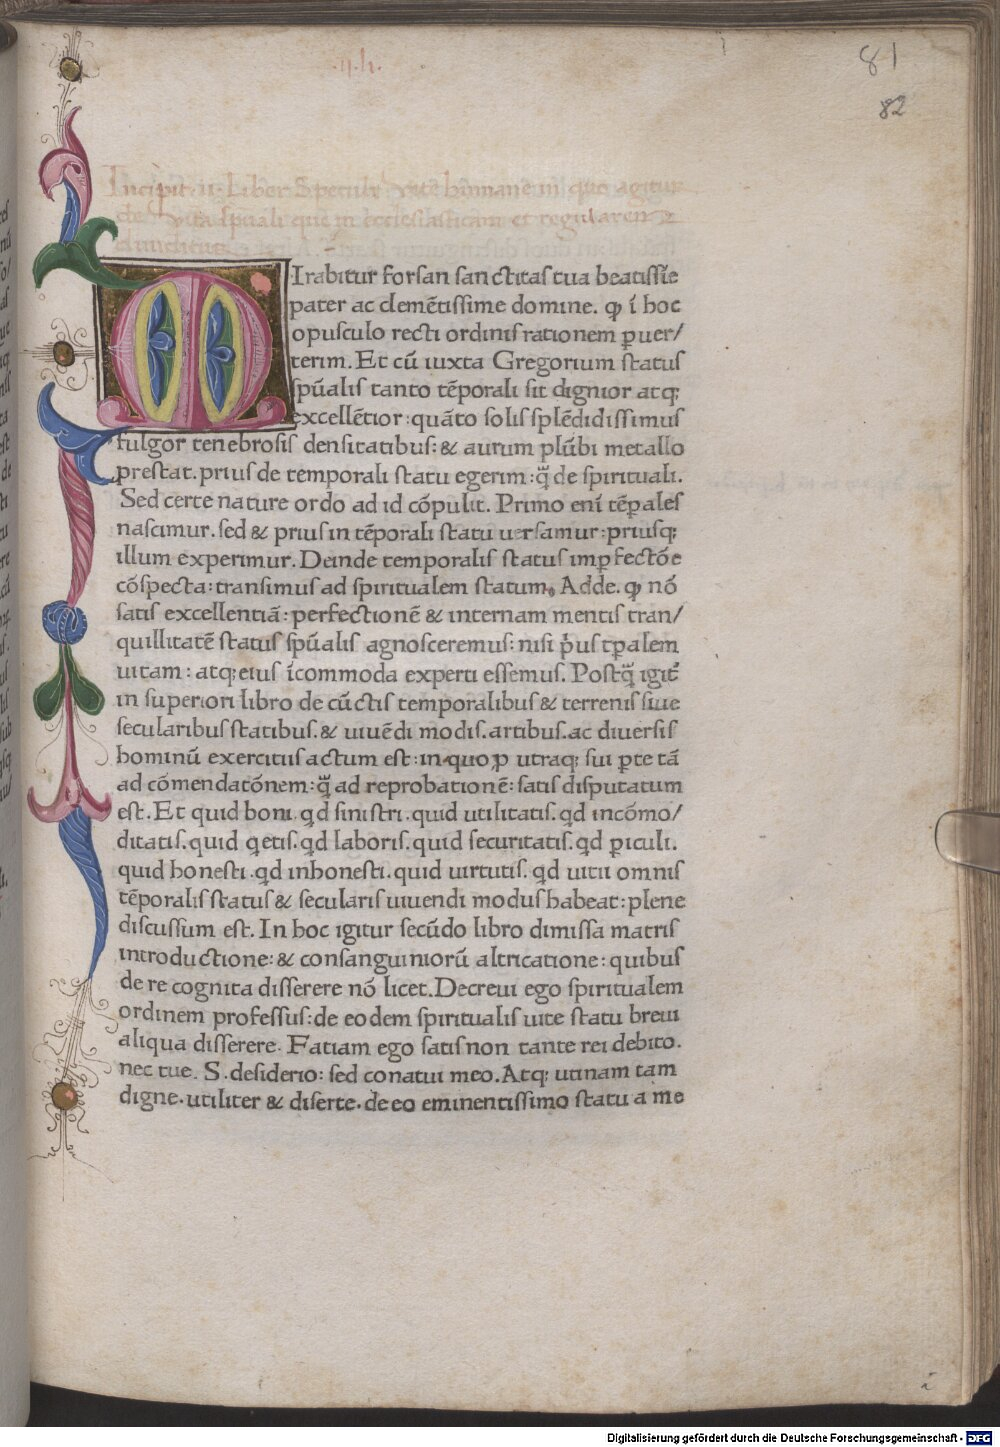 .II.li.
81
82
Incipit .ii. Liber Speculi vite humane in quo agitur
de vita spuali que in ecclesiasticam et regularem
diuiditur
MIrabitur forsan sanctitas tua beatissīe
pater ac clemētissime domine. ꝙ ī hoc
opusculo recti ordinis rationem ꝑuer/
terim. Et cū iuxta Gregorium status
spūalis tanto tēporali sit dignior atqꝫ
excellētior: quāto solis splēdidissimus
fulgor tenebrosis densitatibus: & aurum plūbi metallo
prestat. prius de temporali statu egerim: q̄̈ de spirituali.
Sed certe nature ordo ad id cōpulit. Primo enī tēꝑales
nascimur. sed & prius in tēporali statu uersamur: priusqꝫ
illum experimur. Deinde temporalis status imꝑfectōe
cōspecta: transimus ad spiritualem statum. Adde. ꝙ nō
satis excellentiā: perfectionē & internam mentis tran/
quillitatē status spūalis agnosceremus: nisi p̄us tꝑalem
uitam: atqꝫ eius īcommoda experti essemus. Postq̄̈ igit̄
in superiori libro de cūctis temporalibus & terrenis siue
secularibus statibus. & uiuēdi modis. artibus. ac diuersis
hominū exercitiis actum est: in quo ꝓ utraqꝫ sui ꝑte tā
ad cōmendatōnem: q̄̈ ad reprobationē: satis disputatum
est. Et quid boni. qd sinistri. quid utilitatis. qd incōmo/
ditatis. quid qetis. qd laboris. quid securitatis. qd ꝑiculi.
quid honesti. qd inhonesti. quid uirtutis. qd uitii omnis
tēporalis status & secularis uiuendi modus habeat: plene
discussum est. In hoc igitur secūdo libro dimissa matris
introductione: & consanguiniorū altricatione: quibus
de re cognita disserere nō licet. Decreui ego spiritualem
ordinem professus: de eodem spiritualis uite statu breui
aliqua disserere. Fatiam ego satis non tante rei debito.
nec tue. S. desiderio: sed conatui meo. Atqꝫ utinam tam
digne. utiliter & diserte. de eo eminentissimo statu a me
Digitalisierung gefördert durch die Deutsche Forschungsgemeinschaft - DFG